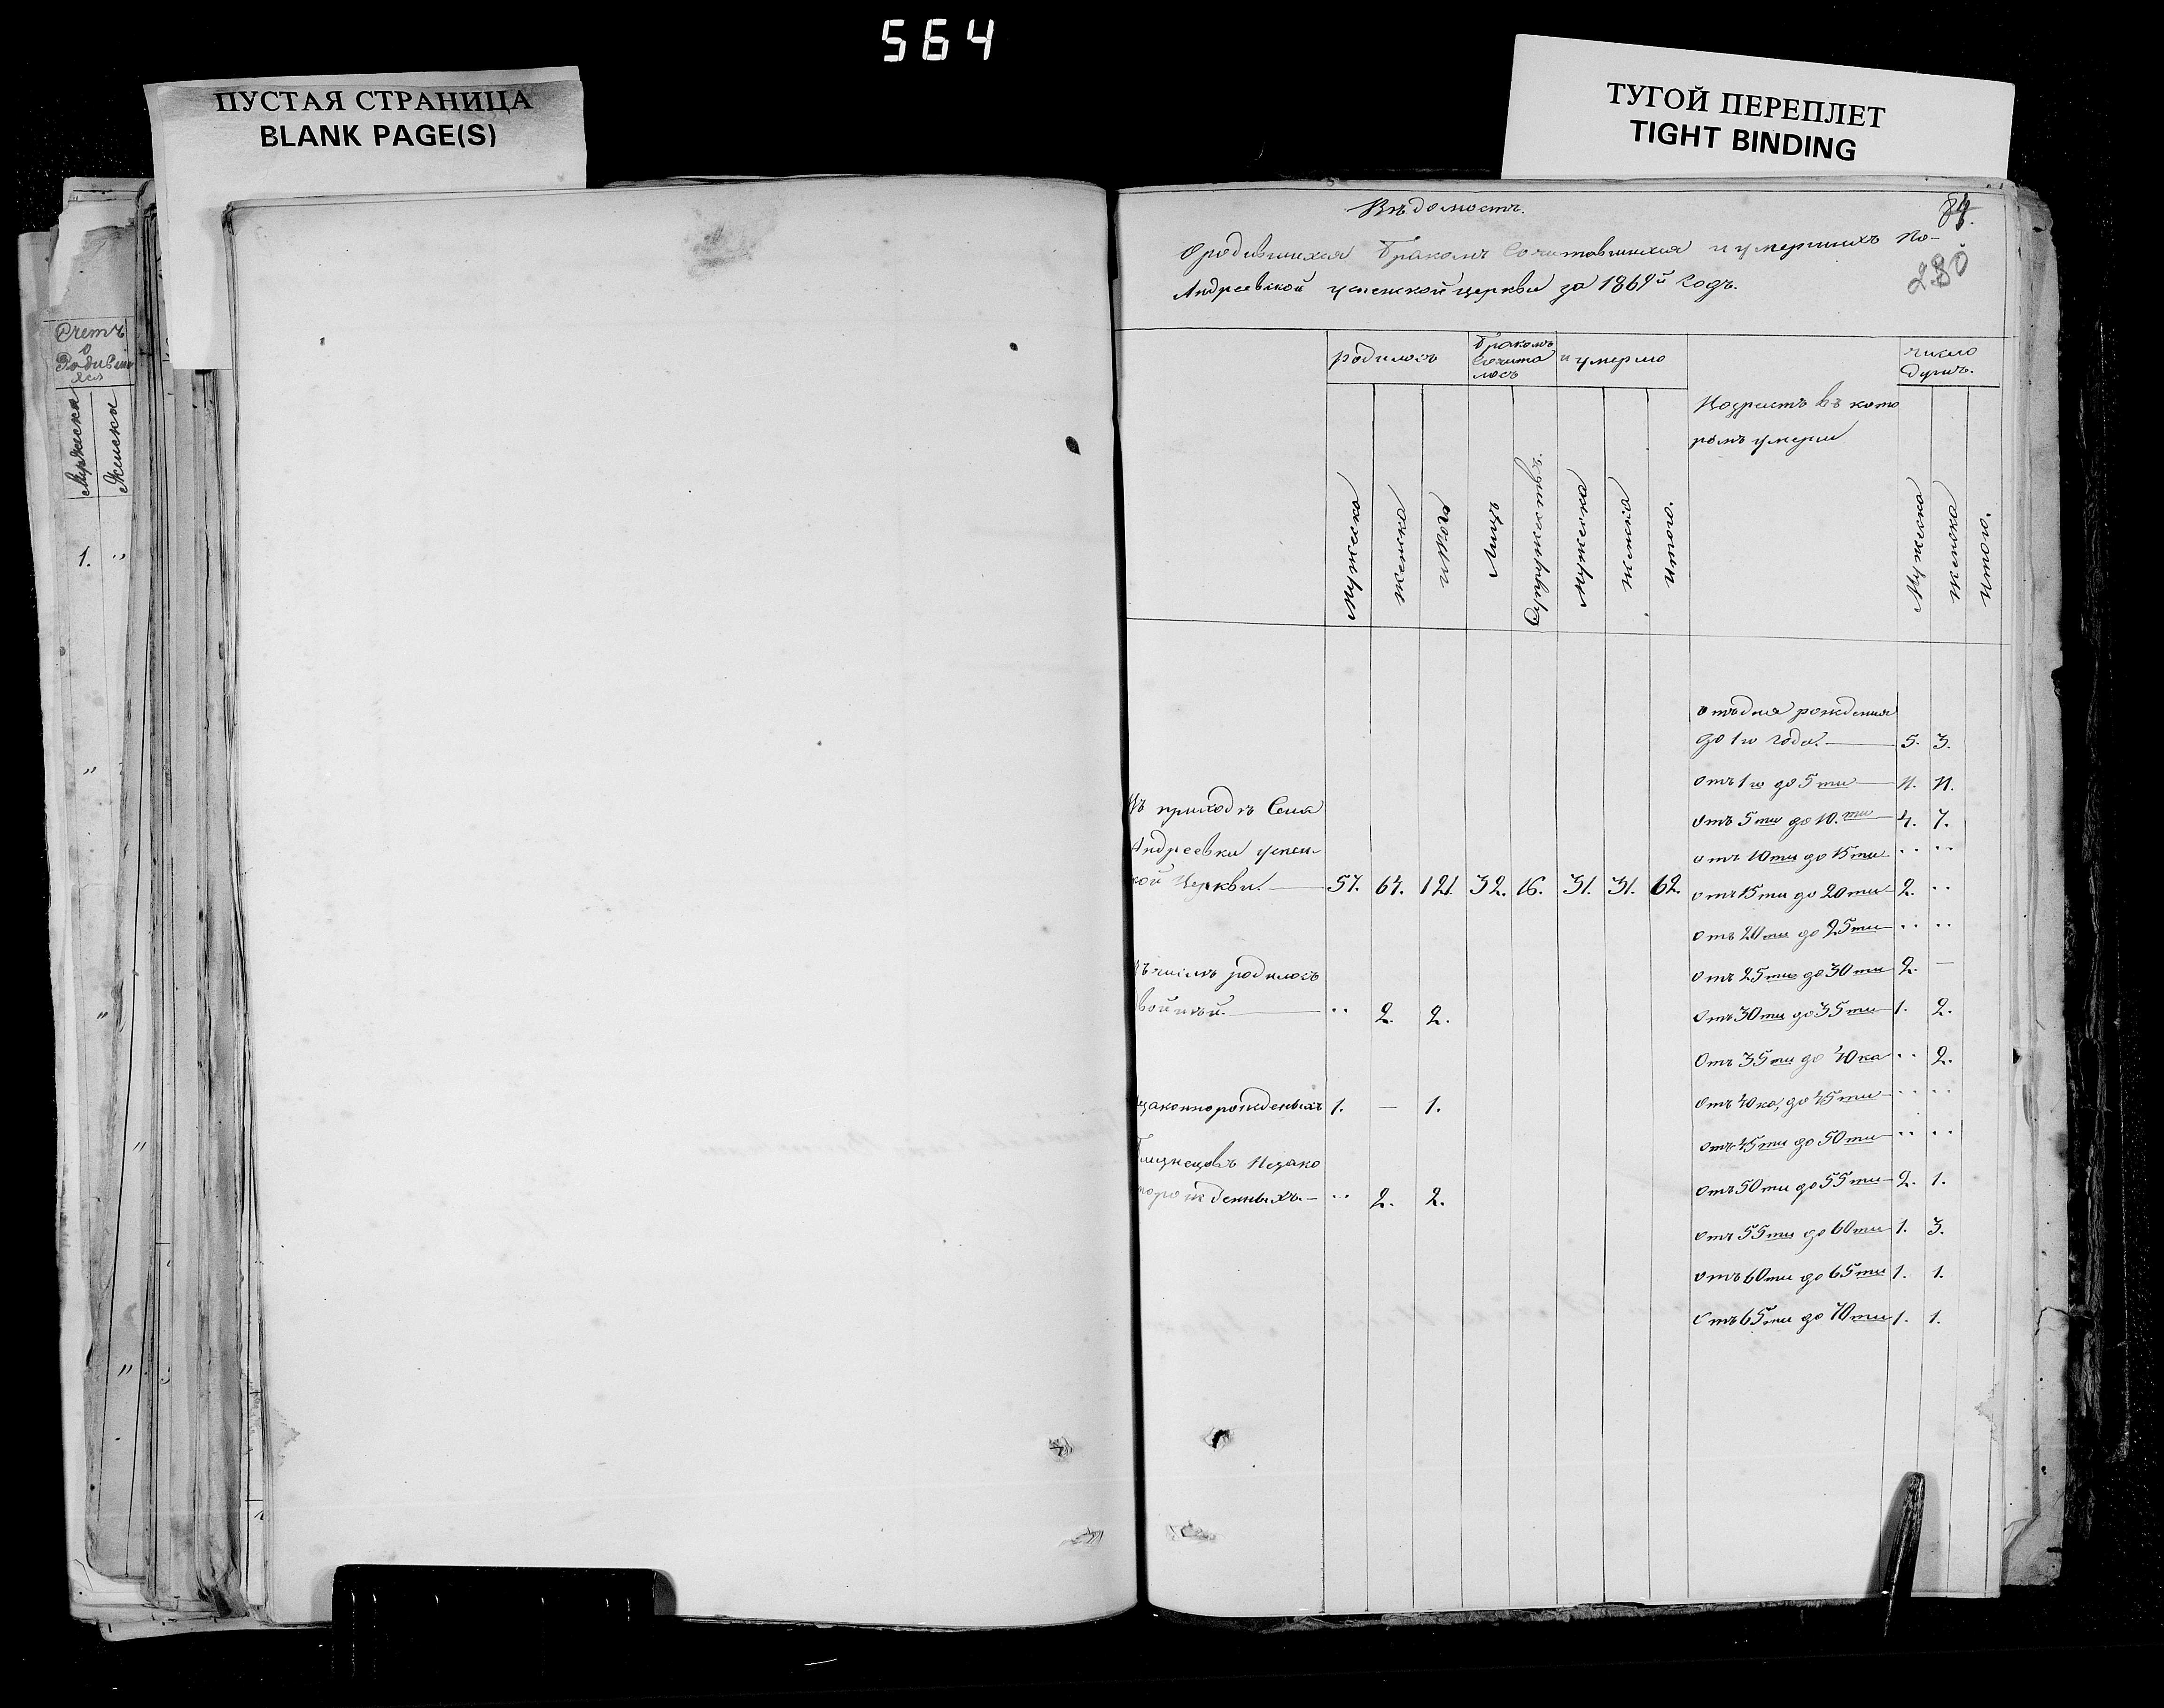 564
ПУСТАЯ СТРАНИЦА
BLANK PAGE(S)
ТУГОЙ ПЕРЕПЛЕТ
TIGHT BINDING
Счетъ
о
Родивших
ся
Мужеска
Женска
1. "
Вѣдомость.
84.
280
О родившихся Бракомъ Сочитавшихся и умершихъ по-
Андреевской успенской церкви за 1864й Годъ.
родилось
Бракомъ
Сочита
лось
и умерло
Возрастъ въ кото
ромъ умерли
число
душъ.
Мужеска
женска
итого
Лицъ
Супружествъ.
мужеска
женска
итого.
Мужеска
женска
итого.
отъ дня рожденія
до 1го года. 5. 3.
отъ 1го до 5ти 11. 11.
отъ 5ти до 10.ти 4. 7.
отъ 10ти до 15ти " "
отъ 15ти до 20ти 2. "
отъ 20ти до 25ти " "
отъ 25ти до 30ти 2. —
отъ 30ти до 35ти 1. 2.
отъ 35ти до 40ка " 2.
отъ 40ка до 45ти " "
отъ 45ти до 50ти " "
отъ 50ти до 55ти 2. 1.
отъ 55ти до 60ти 1. 3.
отъ 60ти до 65ти 1. 1.
отъ 65ти до 70ти 1. 1.
Въ приходѣ Села
Андреевки успен-
кой Церкви. 57. 64. 121. 32. 16. 31. 31. 62.
числѣ родилось
двойней. " 2. 2.
незаконнорожденыхъ 1. — 1.
Близнецовъ Незако
норожденныхъ. " 2. 2.